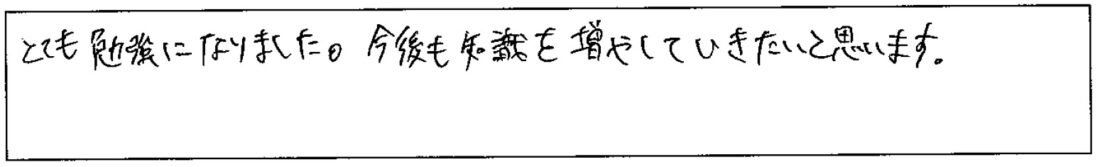 とても勉強になりました。今後も知識を増やしていきたいと思います。